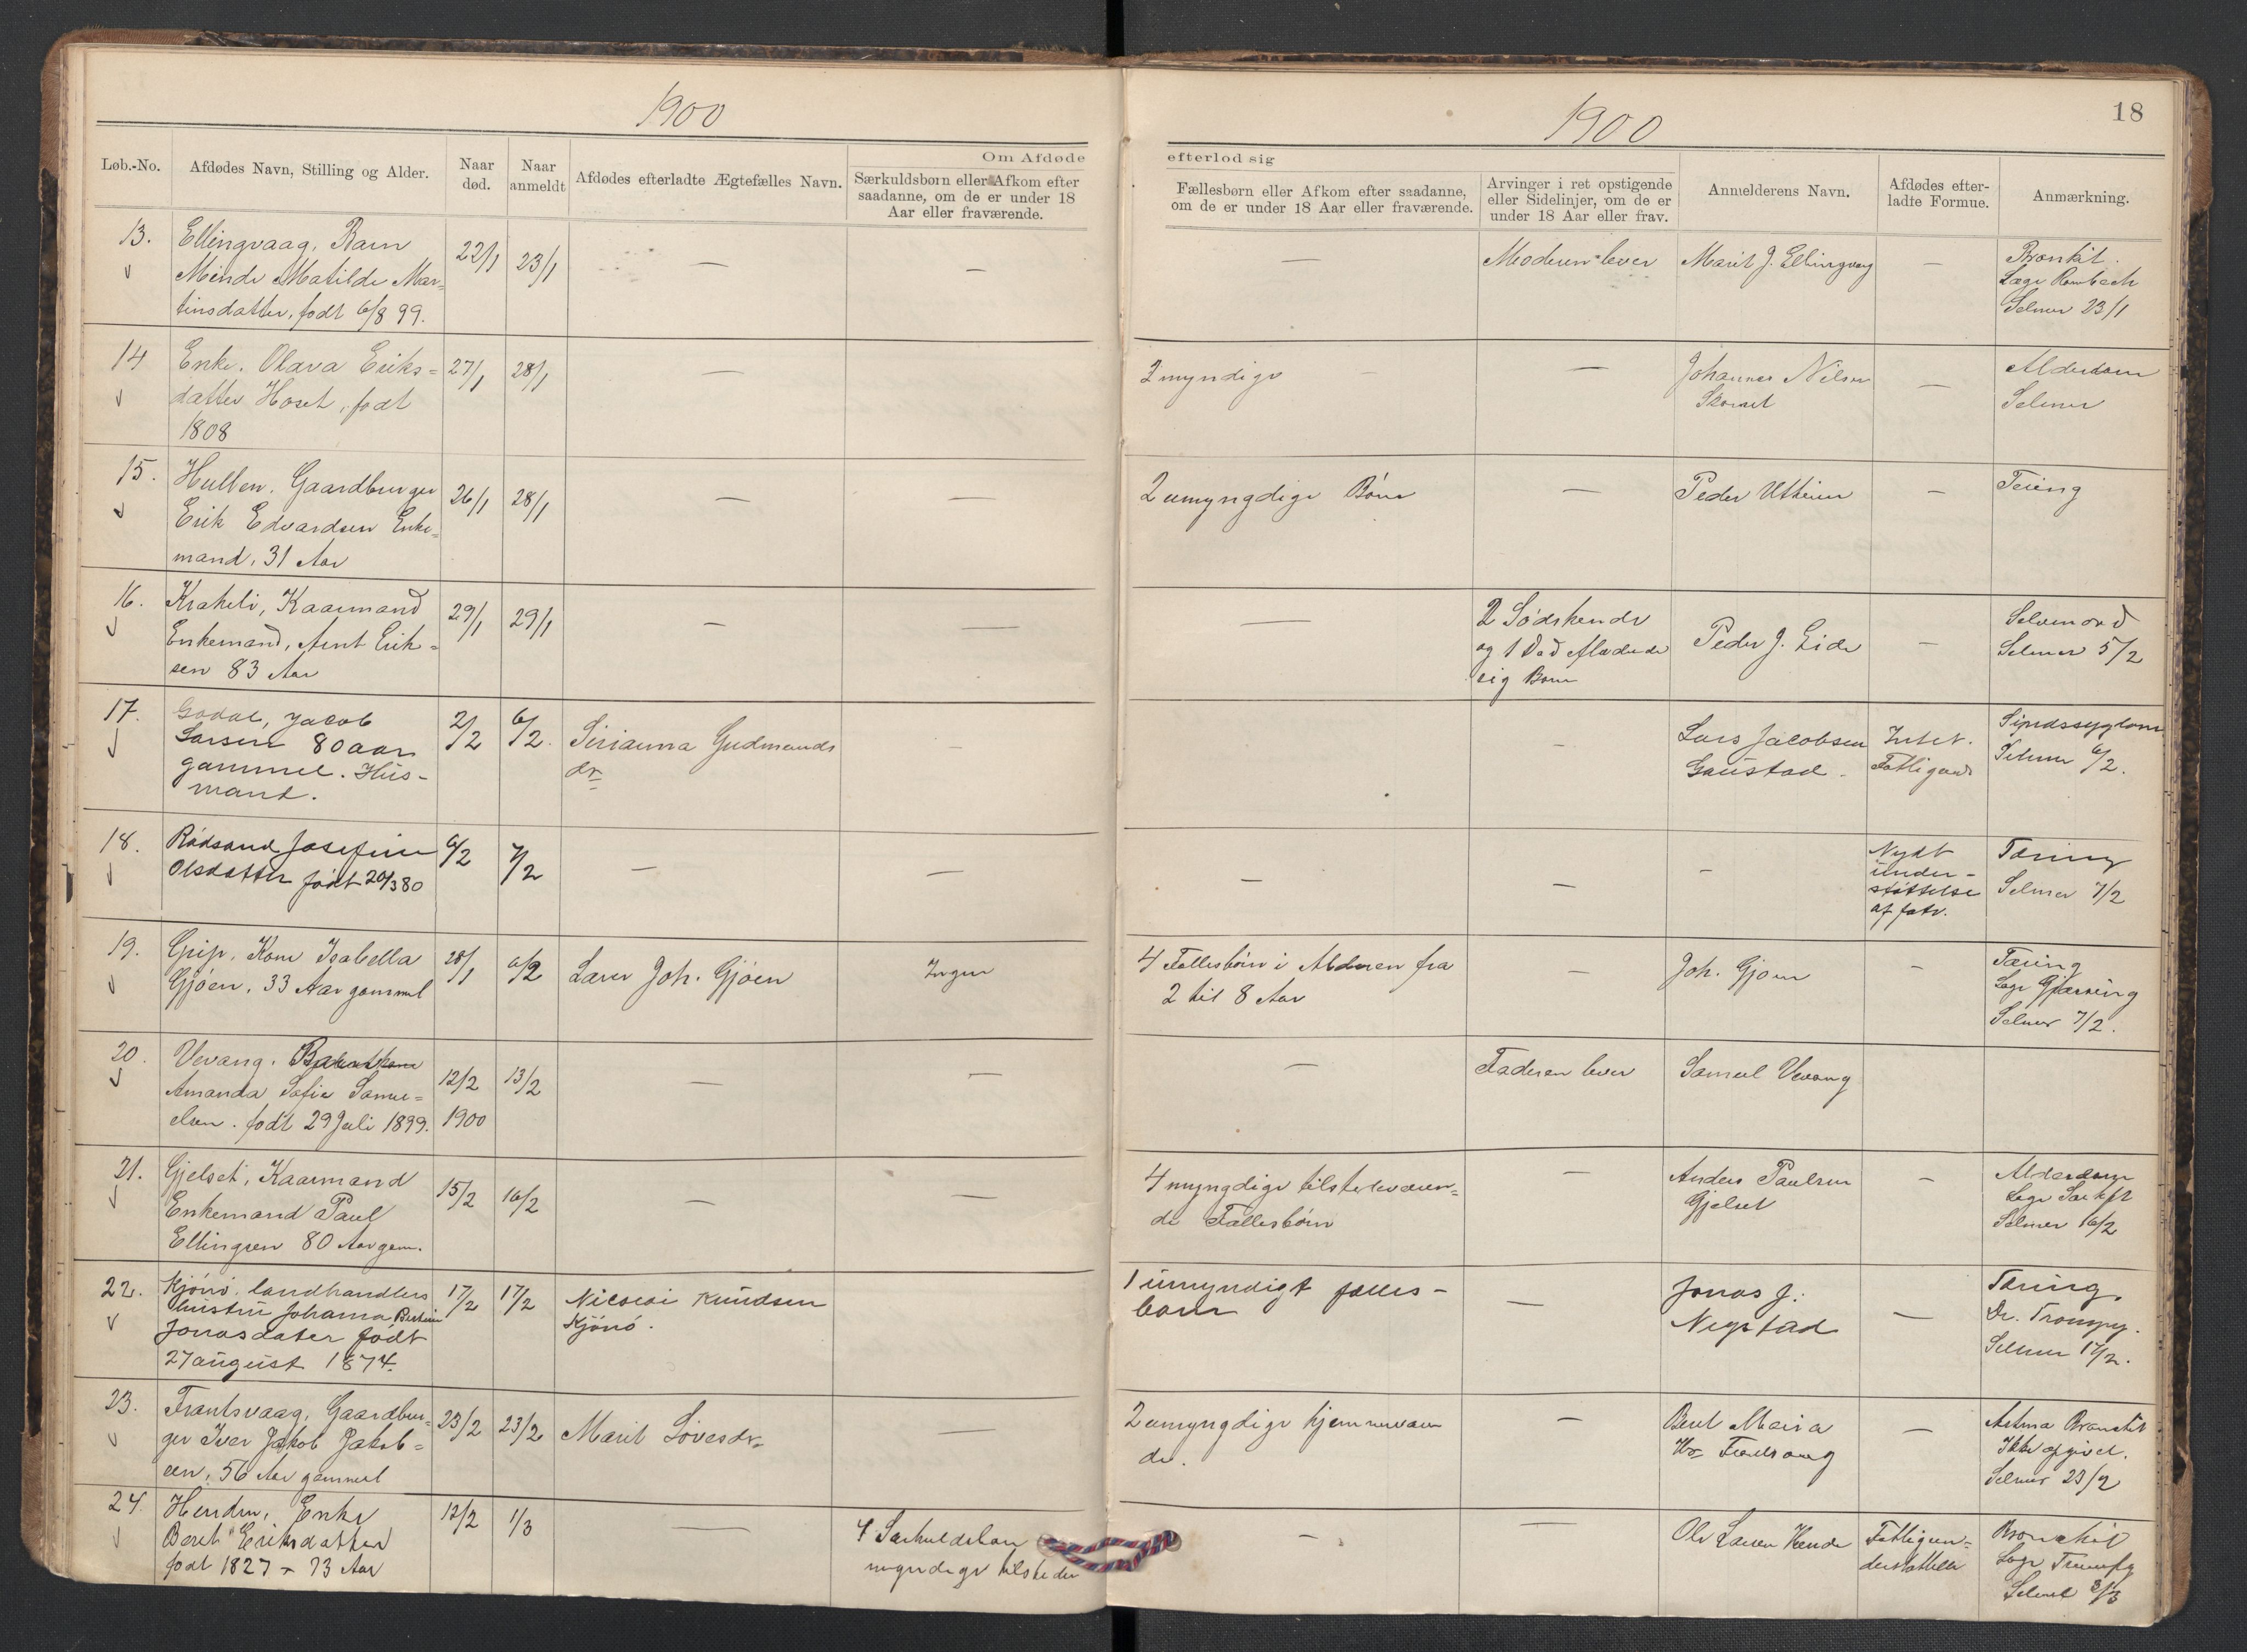 1900
1900
18
Løb.-No.
Afdødes Navn, Stilling og Alder.
Naar død.
Naar anmeldt
Om Afdøde
efterlod sig
Afdødes efterladte Ægtefælles Navn.
Særkuldsbørn eller Afkom efter
saadanne, om de er under 18
Aar eller fraværende.
Fællesbørn eller Afkom efter saadanne,
om de er under 18 Aar eller fraværende.
Arvinger i ret opstigende
eller Sidelinjer, om de er
under 18 Aar eller frav.
Anmelderens Navn.
Afdødes efter-
ladte Formue.
Anmærkning.
13.
Ellingvaag, Barn
Minde Matilde Mar=
tinsdatter, født 6/8 99.
22/1
23/1
—
—
—
Moderen lever
Marit J. Ellingvaag
—
Bronkit.
Læge Rombach
Selmer 23/1
14
Enke. Olava Eriks=
datter Hoset, født
1808
27/1
28/1
—
2 myndige
—
Johannes Nilsen
—
Alderdom
Selmer
15.
Hullen. Gaardbruger
Erik Edvardsen Enke=
mand, 31 Aar
26/1
28/1
—
—
2 umyngdige Børn
—
Peder Utheim
—
Tæring
16.
Krakeli, Kaarmand
Enkemand, Arnt Erik=
sen 83 Aar
29/1
29/1
—
—
—
2 Sødskende
og 1 Død
sig Børn
Peder J. Lide
—
Selvmord
Selmer 5/2
17.
Godal, Jacob
Larsen 80 aar
gammel. Hus-
mand.
2/2
6/2.
Sirianna Gudmunds
dr
—
—
Lars Jacobsen
Gaustad.
Intet.
Fattigund
Selmer 6/2.
18.
Rødsand Josefine
Olsdatter født 20/3 80
6/2
7/2
—
—
—
—
—
Nydt
under-
støttelse
af fatv.
Tæring
Selmer 7/2
19.
Grip, Kone Isabella
Gjøen, 33 Aar gammel
28/1
6/2
Lars Joh. Gjøen
Ingen
4 Fællesbørn i Alderen fra
2 til 8 Aar
—
Joh. Gjøen
—
Tæring
Læge Gjærsing
Selmer 7/2.
20.
Vevang.
Amanda Sofie Samu=
elsen. født 29 Juli 1899.
12/2
1900
13/2
—
—
—
Faderen lever
Samuel Vevang
21.
Gjelset, Kaarmand
Enkemand Paul
Ellingsen 80 Aar gam.
15/2
16/2
—
—
4 myngdige tilstedeværen=
de Fællesbørn
—
Anders Paulsen
Gjelset
—
Alderdom
Selmer 16/2
22.
Kjønø. landhandlers
hustru Johanna
Jonasdater født
27 august 1874.
17/2
17/2
Nicolai Knudsen
Kjønø.
1 umyndigt fælles-
barn
—
Jonas J.
Negstad
—
Tæring.
Selmer 17/2.
23.
Frantsvaag, Gaardbru=
ger Iver Jakob Jakob=
sen, 56 Aar gammel
23/2
23/2
Marit Lovesdr
—
2 umyngdige hjemmeværen
de.
—
—
Astma Bronchit
Ikke opgivet.
Selmer 23/2
24.
Henden, Enke
Beret Eriksdatter
født 1827 – 73 Aar
12/2
1/3
—
4 Særkuldsbørn
myndige tilstede
—
—
Ole Larsen Hende
Fattigun=
derstøttelse
Bronchit
Selmer 3/3